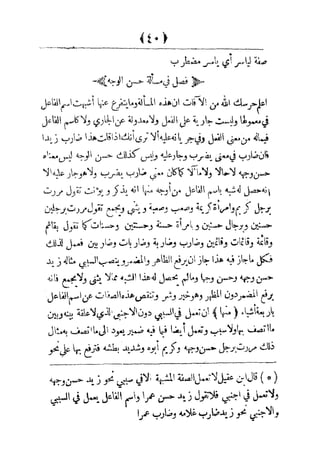 ﴿٤٠﴾
صفة لياسر أي ياسر مضطرب
فصل في مسألة حسن الوجه
اعلم حرسك الله من الآفات ان هذه المسألة وما يتفرع عنها أشبهت اسم الفاعل
في معمولها وليست جارية على الفعل ولا معدولة عن الجاري ولا كاسم الفاعل
فيماله من معنى الفعل وفي جريانه عليه ألا ترى أنك اذا قلت هذا ضارب زيدا
فان ضارب في معنى يضرب وجار عليه وليس كذلك حسن الوجه ليس معناه
حسن وجهه لا حالا ولا مآلا كما كان معنى ضارب يضرب ولا هو جار عليه الا
انه حصل له شبه باسم الفاعل من أوجه منها انه يذكر ويؤنث تقول مررت
برجل كريم وامرأة كريمة وصعب وصعبة ويثنى ويجمع تقول مررت برجلين
حسنين وبرجال حسنين وامرأة حسنة وحسنتين وحسنات كما تقول بقائم
وقائمة وقائمات وقائمين وضارب وضاربة وضاربات وضاربين فعمل لذلك
فكل ما جاز فيه هذا جاز ان يرفع الظاهر والمضمر وينصب السببي مثاله زيد
حسن وجهه وحسن وجها وما لم يحصل له هذا الشبه مما لا يثنى ولا يجمع فانه
يرفع المضمر دون المظهر وهو خير وشر وتنقص هذه الصفات عن اسم الفاعل
بأربعة أشياء ﴿منها﴾ ان تعمل في السببي دون الاجنبي الذي لا علقة بينه وبين
ما اتصف بها ولا سبب وتعمل أيضا فيما فيه ضمير يعود الى ما اتصف به مثال
ذلك مررت برجل حسن وجهه وكريم أبوه وشديد بطشه فترفع بها على نحو
(*) قال ابن عقيل لا تعمل الصفة المشبهة الا في سببي نحو زيد حسن وجهه
ولا تعمل في اجنبي فلا تقول زيد حسن عمرا واسم الفاعل يعمل في السببي
والاجنبي نحو زيد ضارب غلامه وضارب عمرا